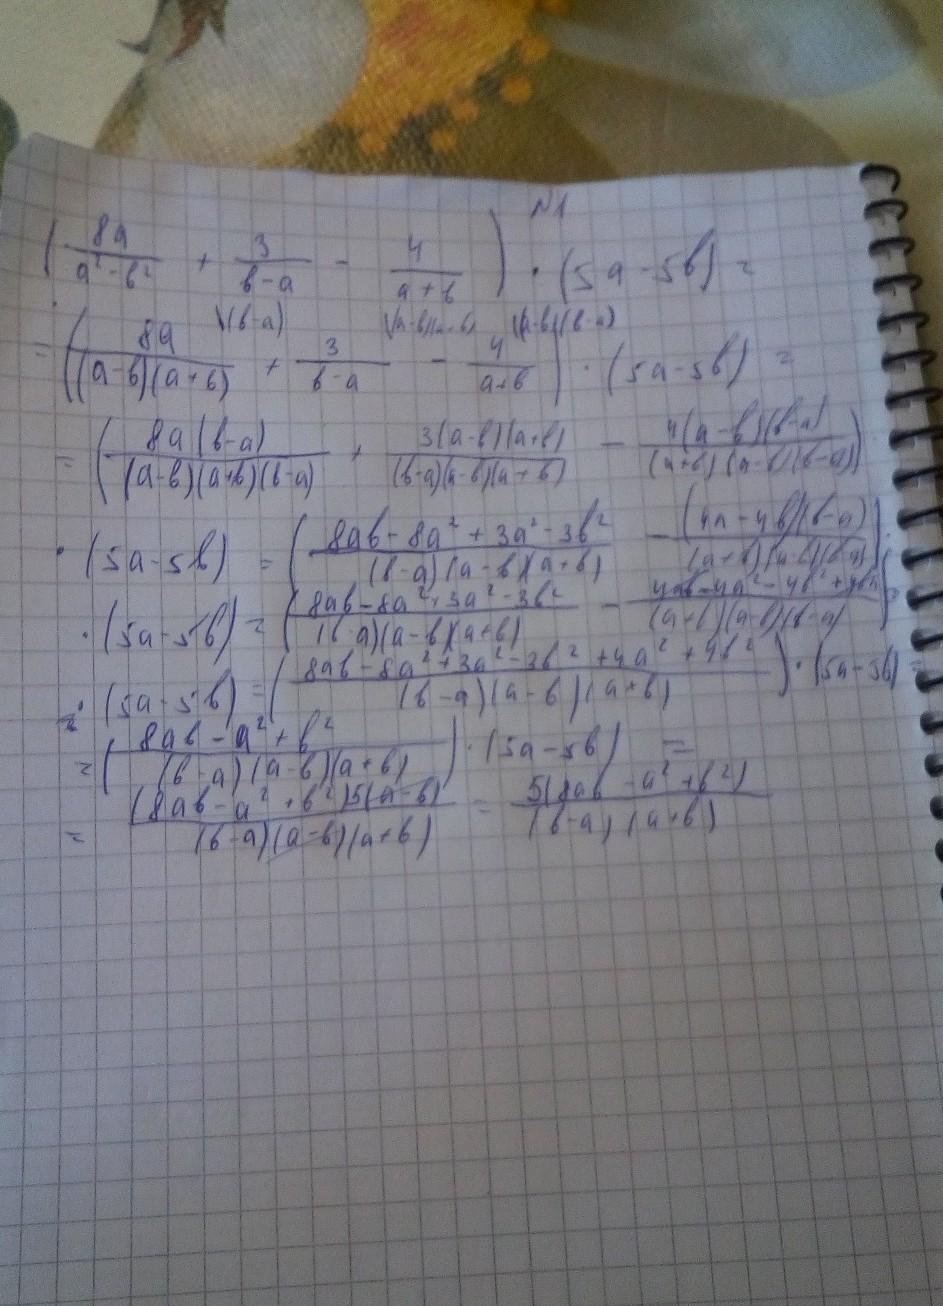 N1
( 8a / a² - b² + 3 / b - a - 4 / a + b ) · (5a - 5b) =
\(b-a) \(a-b)(a+b) \(a-b)(b-a)
= ( 8a / (a-b)(a+b) + 3 / b - a - 4 / a+b ) · (5a - 5b) =
= ( 8a(b-a) / (a-b)(a+b)(b-a) + 3(a-b)(a+b) / (b-a)(a-b)(a+b) - 4(a-b)(b-a) / (a+b)(a-b)(b-a) ) ·
· (5a - 5b) = ( 8ab - 8a² + 3a² - 3b² / (b-a)(a-b)(a+b) - (4a - 4b)(b-a) / (a+b)(a-b)(b-a) ) ·
· (5a - 5b) = ( 8ab - 8a² + 3a² - 3b² / (b-a)(a-b)(a+b) - 4ab - 4a² - 4b² + 4ba / (a+b)(a-b)(b-a) ) ·
· (5a - 5b) = ( 8ab - 8a² + 3a² - 3b² + 4a² + 4b² / (b-a)(a-b)(a+b) ) · (5a - 5b) =
= ( 8ab - a² + b² / (b-a)(a-b)(a+b) ) · (5a - 5b) =
= (8ab - a² + b²)5(a-b) / (b-a)(a-b)(a+b) = 5(8ab - a² + b²) / (b-a)(a+b)